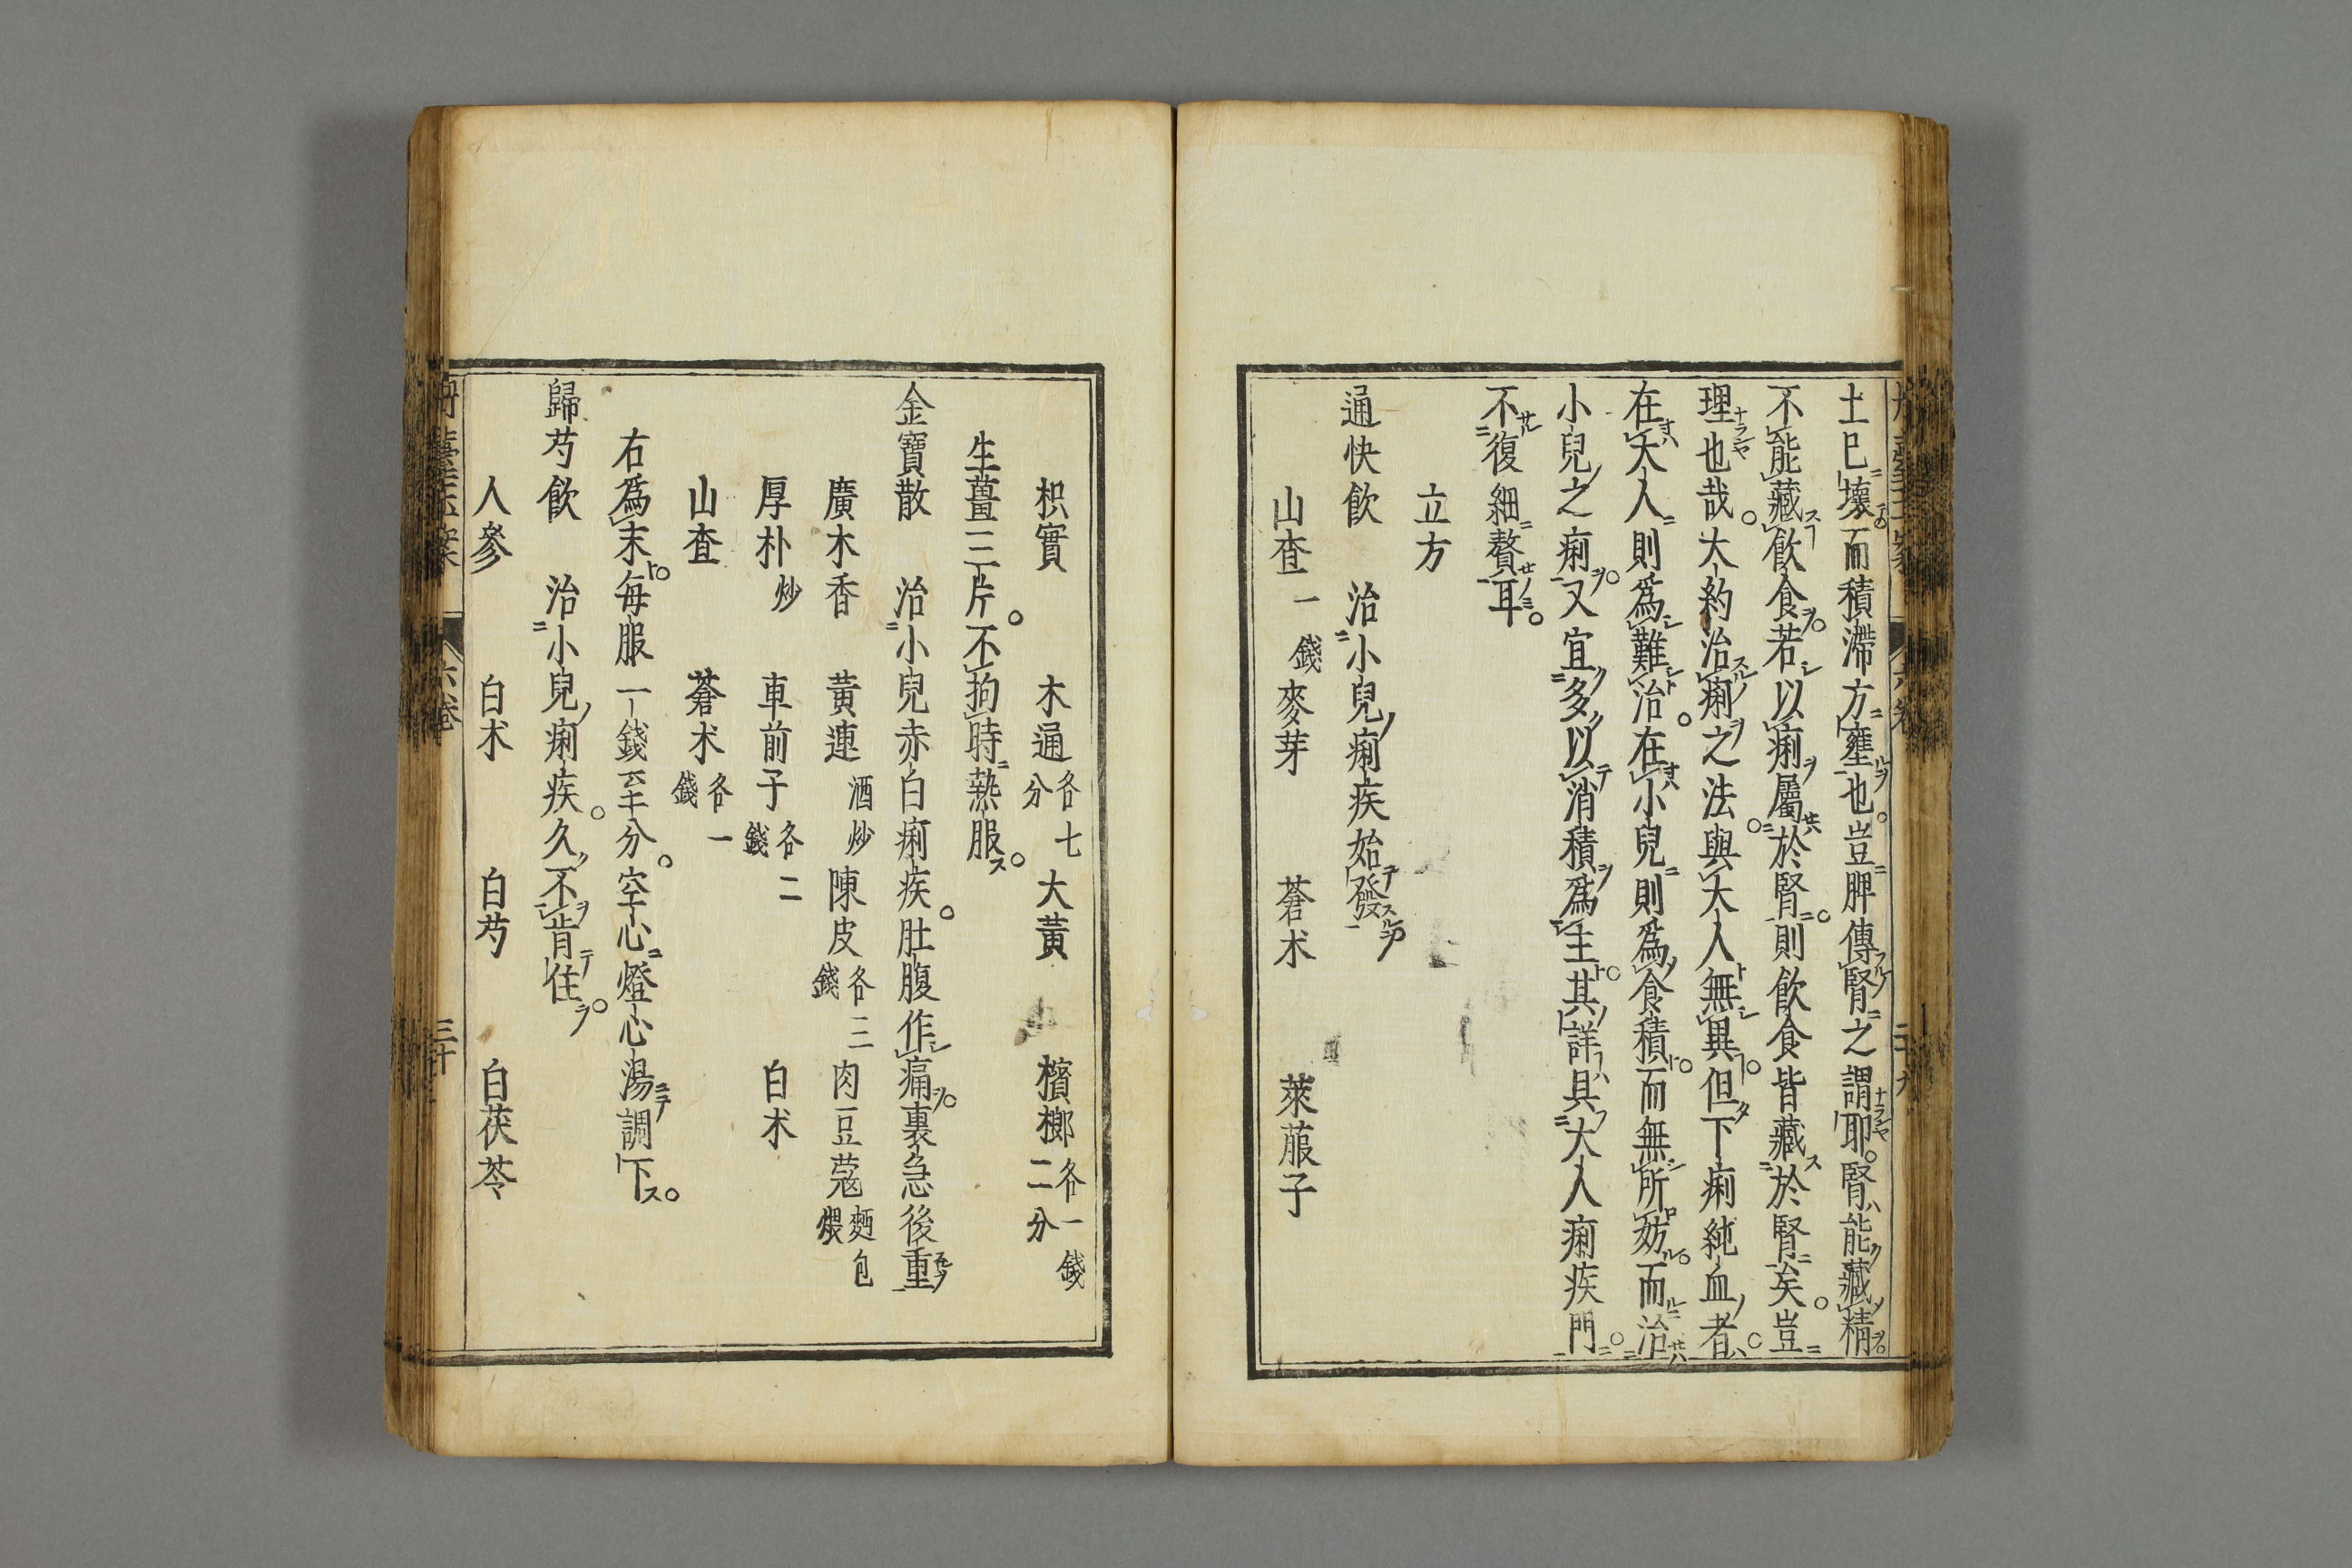 土已壞而積滯方壅也豈脾傳腎之謂耶腎能藏精
不能藏飲食若以痢屬於腎則飲食皆藏於腎矣豈
理也哉大約治痢之法與大人無異但下痢純血者
在大人則爲難治在小兒則爲食積而無所妨而治
小兒之痢又宜多以消積爲主其詳具大人痢疾門
不復細贅耳
立方
通快飲　治小兒痢疾始發
山查一錢　麥芽　蒼朮　萊菔子
枳實　木通各七分　大黃　檳榔各一錢二分
生薑三片不拘時熱服
金寶散　治小兒赤白痢疾肚腹作痛裏急後重
廣木香　黃連酒炒　陳皮各三錢　肉豆蔻麵包煨
厚朴炒　車前子各二錢　白朮
山查　蒼朮各一錢
右爲末每服一錢至二分空心燈心湯調下
歸芍飲　治小兒痢疾久不肯住
人參　白朮　白芍　白茯苓
六卷
三十